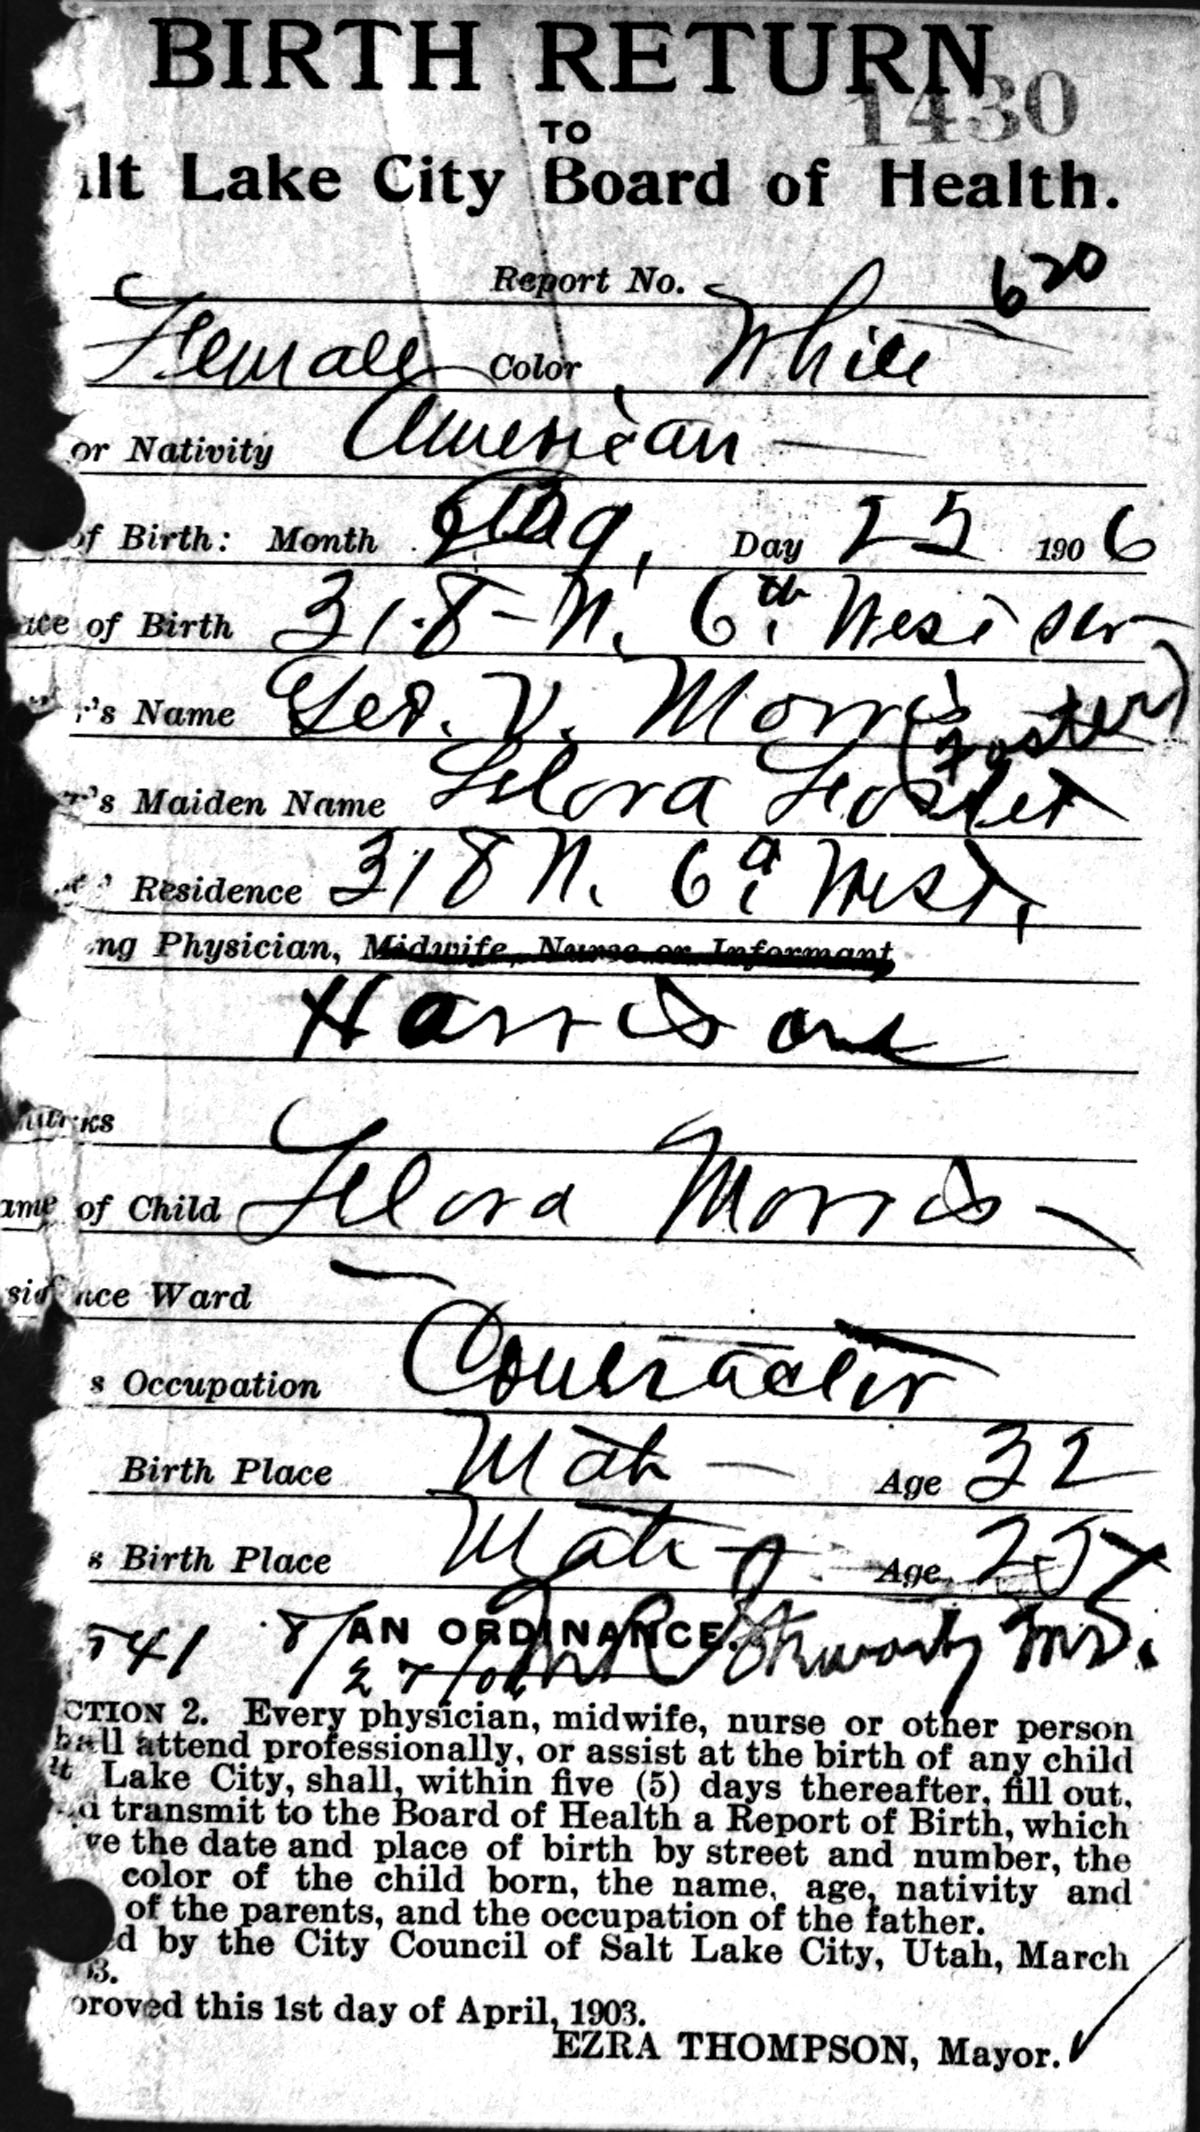 BIRTH RETURN
1430
TO
alt Lake City Board of Health.
Report No. 620
Female Color White
or Nativity American
of Birth: Month Aug, Day 25 1906
ace of Birth 318 - N. 6th West
r's Name Geo. V. Morris
(Foster)
r's Maiden Name Felora Foster
Residence 318 N. 6th West.
ng Physician, Midwife, Nurse or Informant
Harrison
rks
ame of Child Felora Morris
sidence Ward
s Occupation Contractor
Birth Place Utah Age 32
s Birth Place Utah Age 25
541 8/27/06 AN ORDINANCE. M.D.
CTION 2. Every physician, midwife, nurse or other person
hall attend professionally, or assist at the birth of any child
lt Lake City, shall, within five (5) days thereafter, fill out,
d transmit to the Board of Health a Report of Birth, which
ve the date and place of birth by street and number, the
color of the child born, the name, age, nativity and
of the parents, and the occupation of the father.
d by the City Council of Salt Lake City, Utah, March
3.
proved this 1st day of April, 1903.
EZRA THOMPSON, Mayor.